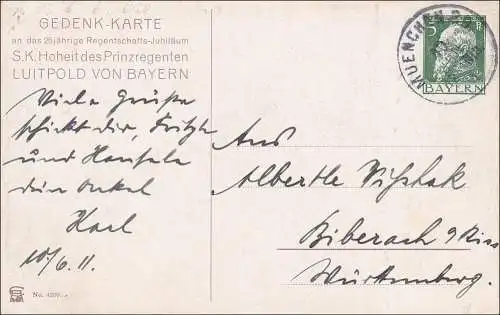 GEDENK-KARTE
an das 25jährige Regentschafts-Jubiläum
S.K. Hoheit des Prinzregenten
LUITPOLD VON BAYERN
Viele Grüße
schickt dir, Fritzle
und Hansele
dein Onkel
Karl
10/6. 11.
No.
MUENCHEN
5
BAYERN
An
Albertle
Biberach a/Riss
Württemberg.